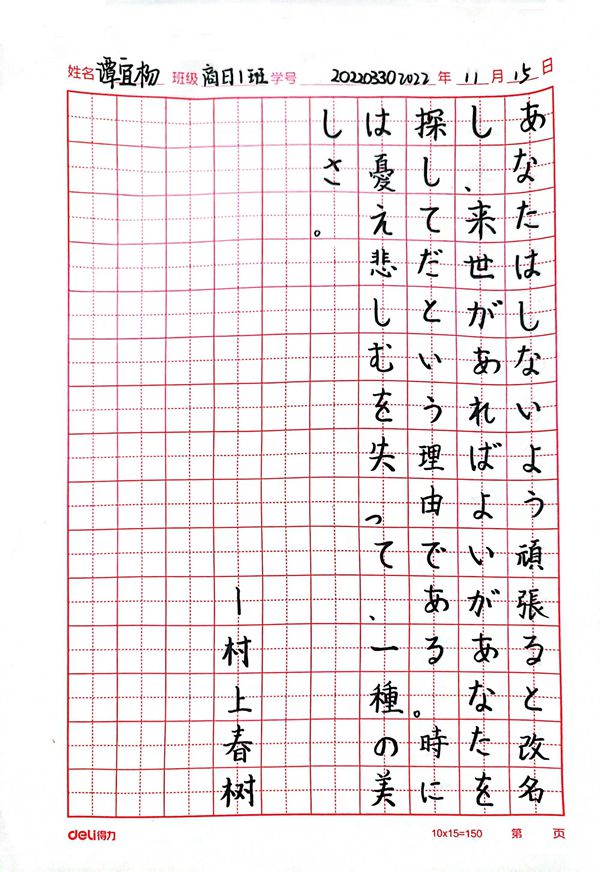 姓名 谭宜杨 班级 商日1班 学号 20220330 2022 年 11 月 15 日
あなたはしないよう頑張ると改名
し、来世があればよいがあなたを
探してだという理由である。時に
は憂え悲しむを失って、一種の美
しさ。
ー村上春树
deli得力 10x15=150 第 页